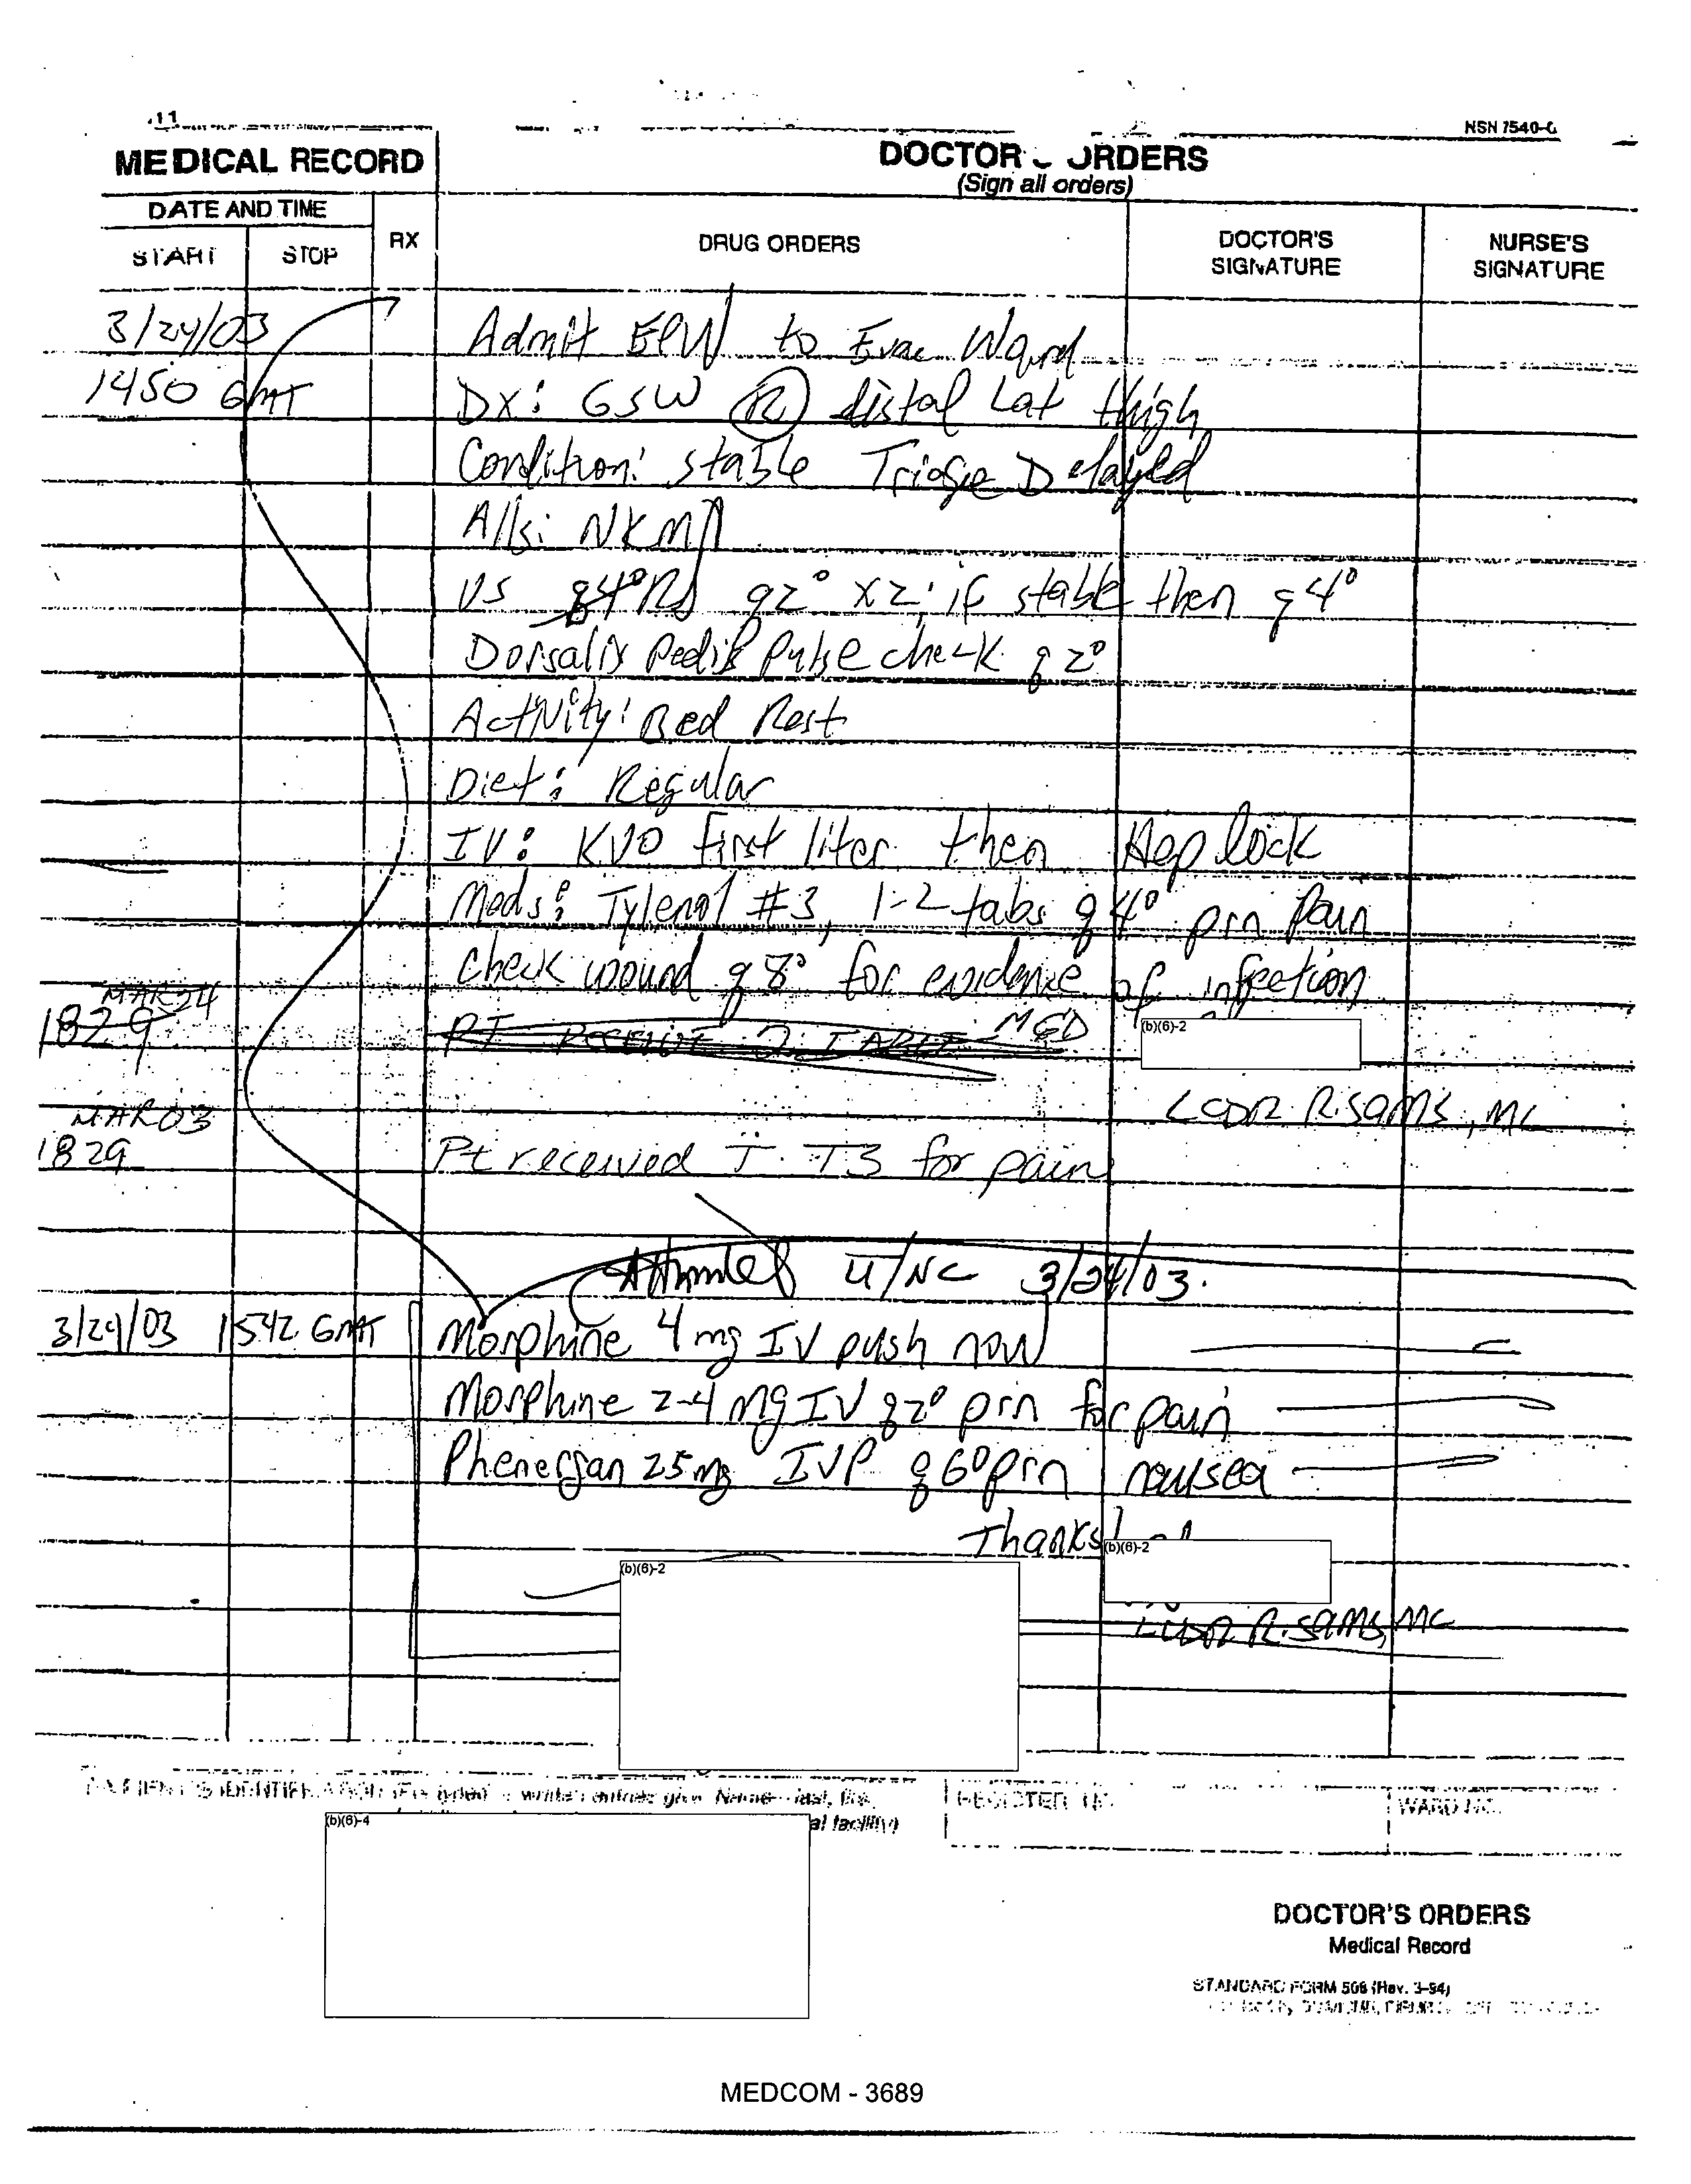 NSN 7540-0
MEDICAL RECORD
DOCTOR ORDERS
(Sign all orders)
DATE AND TIME
START STOP RX DRUG ORDERS DOCTOR'S SIGNATURE NURSE'S SIGNATURE
3/24/03 Admit EPW to Evac Ward
1450 GMT DX: GSW R distal Lat thigh
Condition: stable Triage Delayed
Alls: NKMA
VS q4° RS q2° x2; if stable then q4°
Dorsalis Pedis Pulse check q2°
Activity: Bed Rest
Diet: Regular
IV: KVO first liter then Hep lock
Meds: Tylenol #3, 1-2 tabs q4° prn Pain
check wound q8° for evidence of infection
MAR 24
1829 PT RECEIVE 2 TABLE MED
(b)(6)-2
LCDR R. SAMS, MC
MAR 03
1829 Pt received T3 for pain
/NC 3/24/03.
3/24/03 1542 GMT Morphine 4 mg IV push now
Morphine 2-4 mg IV q2° prn for pain
Phenergan 25mg IVP q6° prn nausea
Thanks!
(b)(6)-2
(b)(6)-2
LCDR R. SAMS, MC
PATIENT'S IDENTIFICATION (For typed or written entries give: Name—last, first,
al facility)
REGISTER NO.
WARD NO.
(b)(6)-4
DOCTOR'S ORDERS
Medical Record
STANDARD FORM 508 (Rev. 3-94)
MEDCOM - 3689